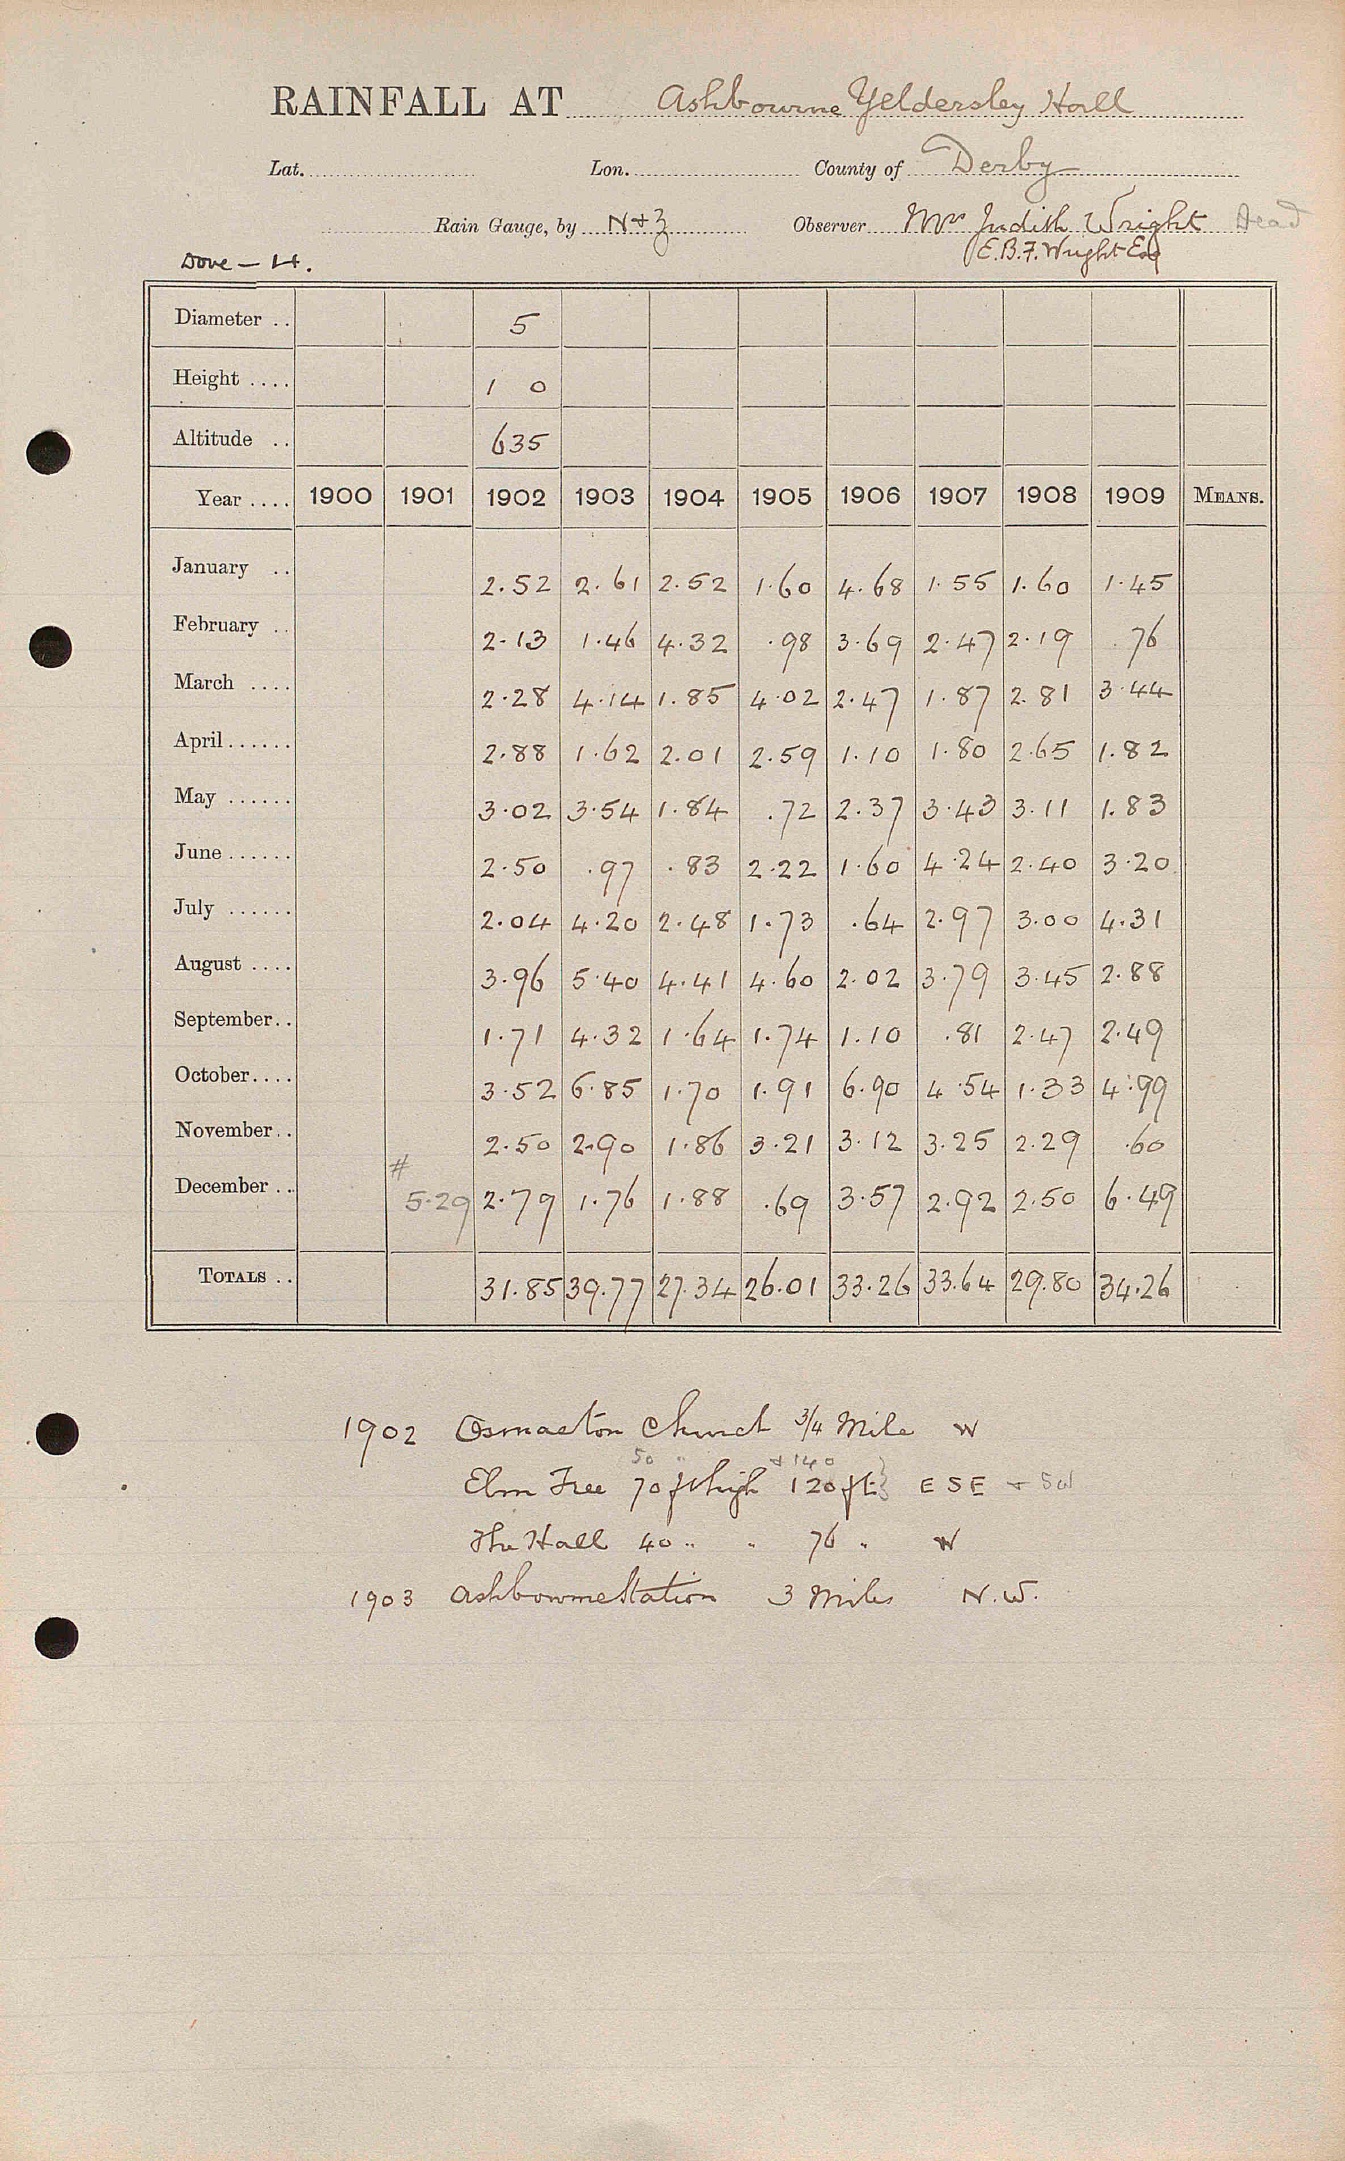 RAINFALL AT Ashbourne Yeldersley Hall
Lat. Lon. County of Derby
Rain Gauge, by N+Z Observer Mrs Judith Wright Dead
Dove - H. E.B.F. Wright Esq
Diameter .. 5
Height .... 1 0
Altitude .. 635
Year .... 1900 1901 1902 1903 1904 1905 1906 1907 1908 1909 MEANS.
January .. 2.52 2.61 2.52 1.60 4.68 1.55 1.60 1.45
February .. 2.13 1.46 4.32 .98 3.69 2.47 2.19 .76
March .... 2.28 4.14 1.85 4.02 2.47 1.87 2.81 3.44
April...... 2.88 1.62 2.01 2.59 1.10 1.80 2.65 1.82
May ...... 3.02 3.54 1.84 .72 2.37 3.43 3.11 1.83
June...... 2.50 .97 .83 2.22 1.60 4.24 2.40 3.20
July ...... 2.04 4.20 2.48 1.73 .64 2.97 3.00 4.31
August .... 3.96 5.40 4.41 4.60 2.02 3.79 3.45 2.88
September.. 1.71 4.32 1.64 1.74 1.10 .81 2.47 2.49
October.... 3.52 6.85 1.70 1.91 6.90 4.54 1.33 4.99
November.. 2.50 2.90 1.86 3.21 3.12 3.25 2.29 .60
#
December .. 5.29 2.79 1.76 1.88 .69 3.57 2.92 2.50 6.49
TOTALS .. 31.85 39.77 27.34 26.01 33.26 33.64 29.80 34.26
1902 Osmaston Church 3/4 Mile W
50 " + 140
Elm Tree 70 ft high 120 ft } ESE + SW
The Hall 40 " " 76 " W
1903 Ashbourne Station 3 Miles N.W.